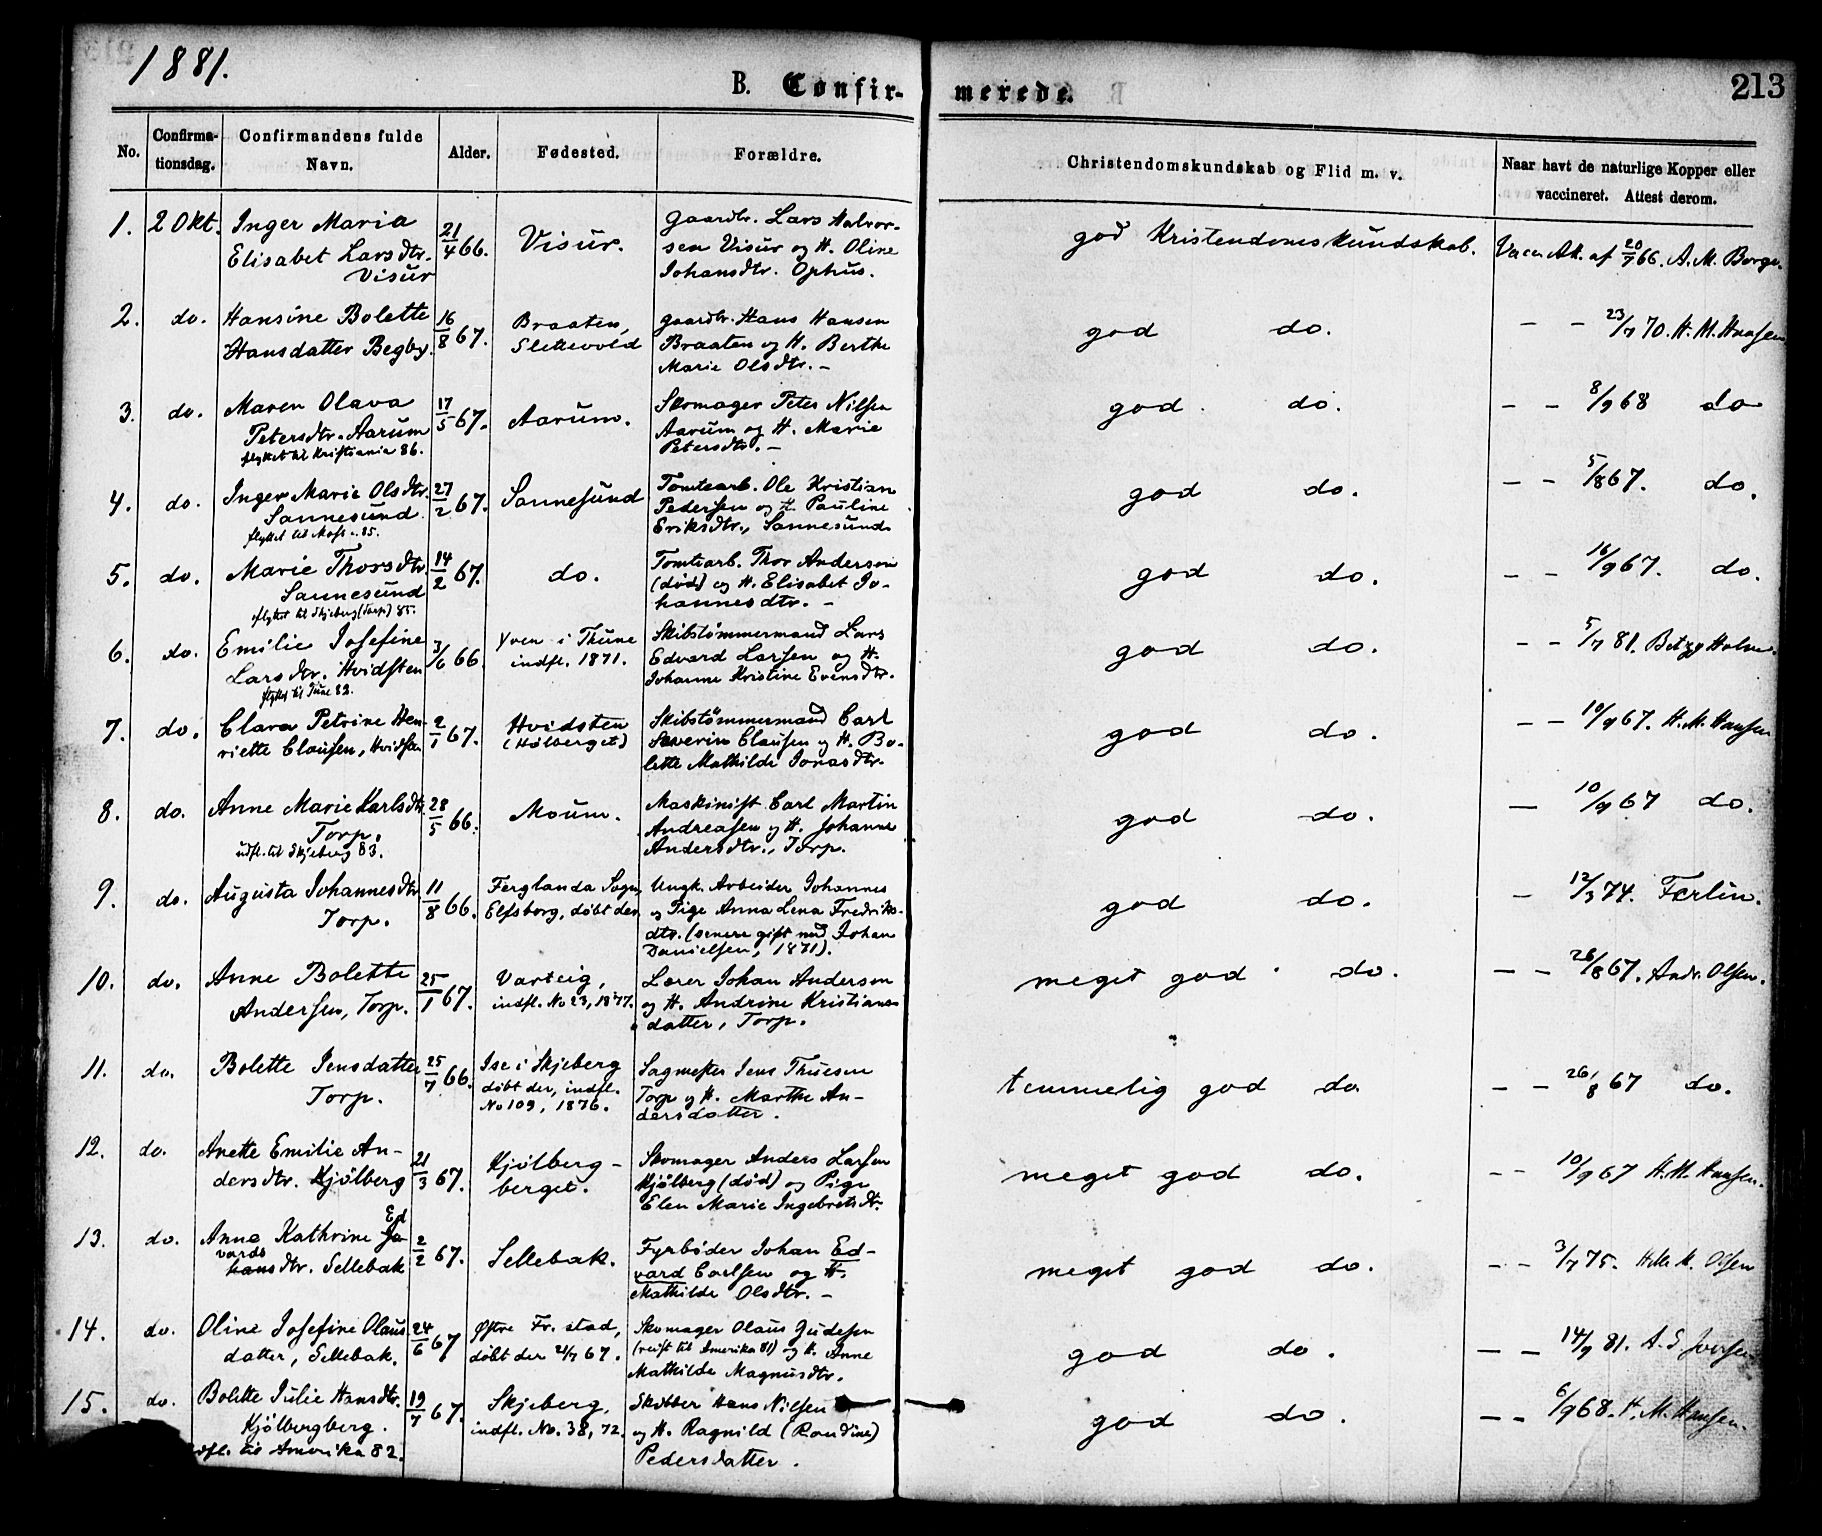 1881.
B. Confir- merede.
213
No.
Confirma-
tionsdag.
Confirmandens fulde
Navn.
Alder.
Fødested.
Forældre.
Christendomskundskab og Flid m. v.
Naar havt de naturlige Kopper eller
vaccineret. Attest derom.
1. 2 Okt. Inger Maria 21/4 66. Visur. Gaardbr. Lars Halvor- god Kristendomskundskab. Vacc. Att. af 20/7 66. A. M. Borge.
Elisabet Larsdtr. sen Visur og H. Oline
Visur Johansdtr. Ophus.
2. do. Hansine Bolette 16/8 67. Braaten, Gaardbr. Hans Hansen god do. – – 23/7 70. H. M. Hansen
Hansdatter Begby. Slettevold Braaten og H. Berthe
Marie Olsdtr. –
3. do. Maren Olava 17/5 67. Aarum. Skomager Peter Nilsen god do. – – 8/9 68 do
Petersdtr. Aarum Aarum og H. Marie
flyttet til Kristiania 86. Petersdtr. –
4. do. Inger Marie Olsdtr. 27/2 67. Sannesund Tomtearb. Ole Kristian god do. – – 5/8 67. do.
Sannesund Pedersen og H. Pauline
flyttet til Moss 85. Eriksdtr., Sannesund
5. do. Marie Thorsdtr. 14/2 67. do. Tomtearb. Thor Anderson god do. – – 16/9 67. do.
Sannesund (död) og H. Elisabet Jo-
flyttet til Skjeberg (Torp) 85. hannesdtr. –
6. do. Emilie Josefine 3/6 66. Yven i Thune Skibstömmermand Lars god do. – – 5/7 81. Betzy Holm.
Larsdtr. Hvidsten indfl. 1871. Edvard Larsen og H.
flyttet til Tune 82. Johanne Kristine Evensdtr.
7. do. Clara Petrine Hen- 2/1 67. Hvidsten Skibstömmermand Carl god do. – – 10/9 67. H. M. Hansen
riette Clausen, Hvidsten (Hölberget) Severin Clausen og H. Bo-
lette Mathilde Jonasdtr.
8. do. Anne Marie Karlsdtr. 28/5 66. Moum. Maskinist Carl Martin god do. – 10/9 67 do.
Torp. Andreasen og H. Johanne
udfl. til Skjeberg 83. Andersdtr., Torp.
9. do. Augusta Johannesdtr. 11/8 66. Ferglanda Sogn, Ungk. Arbeider Johannes god do. – 12/3 74. Ferlin.
Torp. Elfsborg, döbt der og Pige Anna Lena Fredriks-
dtr. (senere gift med Johan
Danielsen, 1871).
10. do. Anne Bolette 25/1 67. Varteig, Lærer Johan Anderson meget god do. – – 26/8 67. Andr. Olsen.
Andersen, Torp. indfl. No 23, 1877. og H. Andrine Kristians-
datter, Torp.
11. do. Bolette Jensdatter 25/7 66. Ise i Skjeberg Sagmester Jens Thuesen temmelig god do. – – 26/8 67 do.
Torp. döbt der, indfl. Torp og H. Marthe An-
No 109, 1876. dersdatter.
12. do. Anette Emilie An- 21/3 67. Kjölberg- Skomager Anders Larsen meget god do. – – 10/9 67 H. M. Hansen.
dersdtr. Kjölberg berget. Kjölberg (död) og Pige
Elen Marie Ingebretsdtr.
13. do. Anna Kathrine Jo- Ed 2/2 67. Sellebak. Fyrböder Johan Ed- meget god do. – – 3/7 75. M. Olsen
vards hansdtr. Sellebak vard Carlsen og H.
Mathilde Olsdtr. –
14. do. Oline Josefine Olaus 24/6 67 Østre Fr. stad, Skomager Olaus Gudesen god do. – – 14/9 81. A. S. Iversen
datter, Sellebak. döbt der 21/7 67. (reist til Amerika 81) og H. Anne
Mathilde Magnusdtr.
15. do. Bolette Julie Hansdtr. 19/7 67. Skjeberg, Skibber Hans Nilsen god do. – – 6/9 68. H. M. Hansen.
Kjölbergberg. indfl. No. 38, 72. og H. Ragnild (Randine)
udfl. til Amerika 82. Pedersdatter.